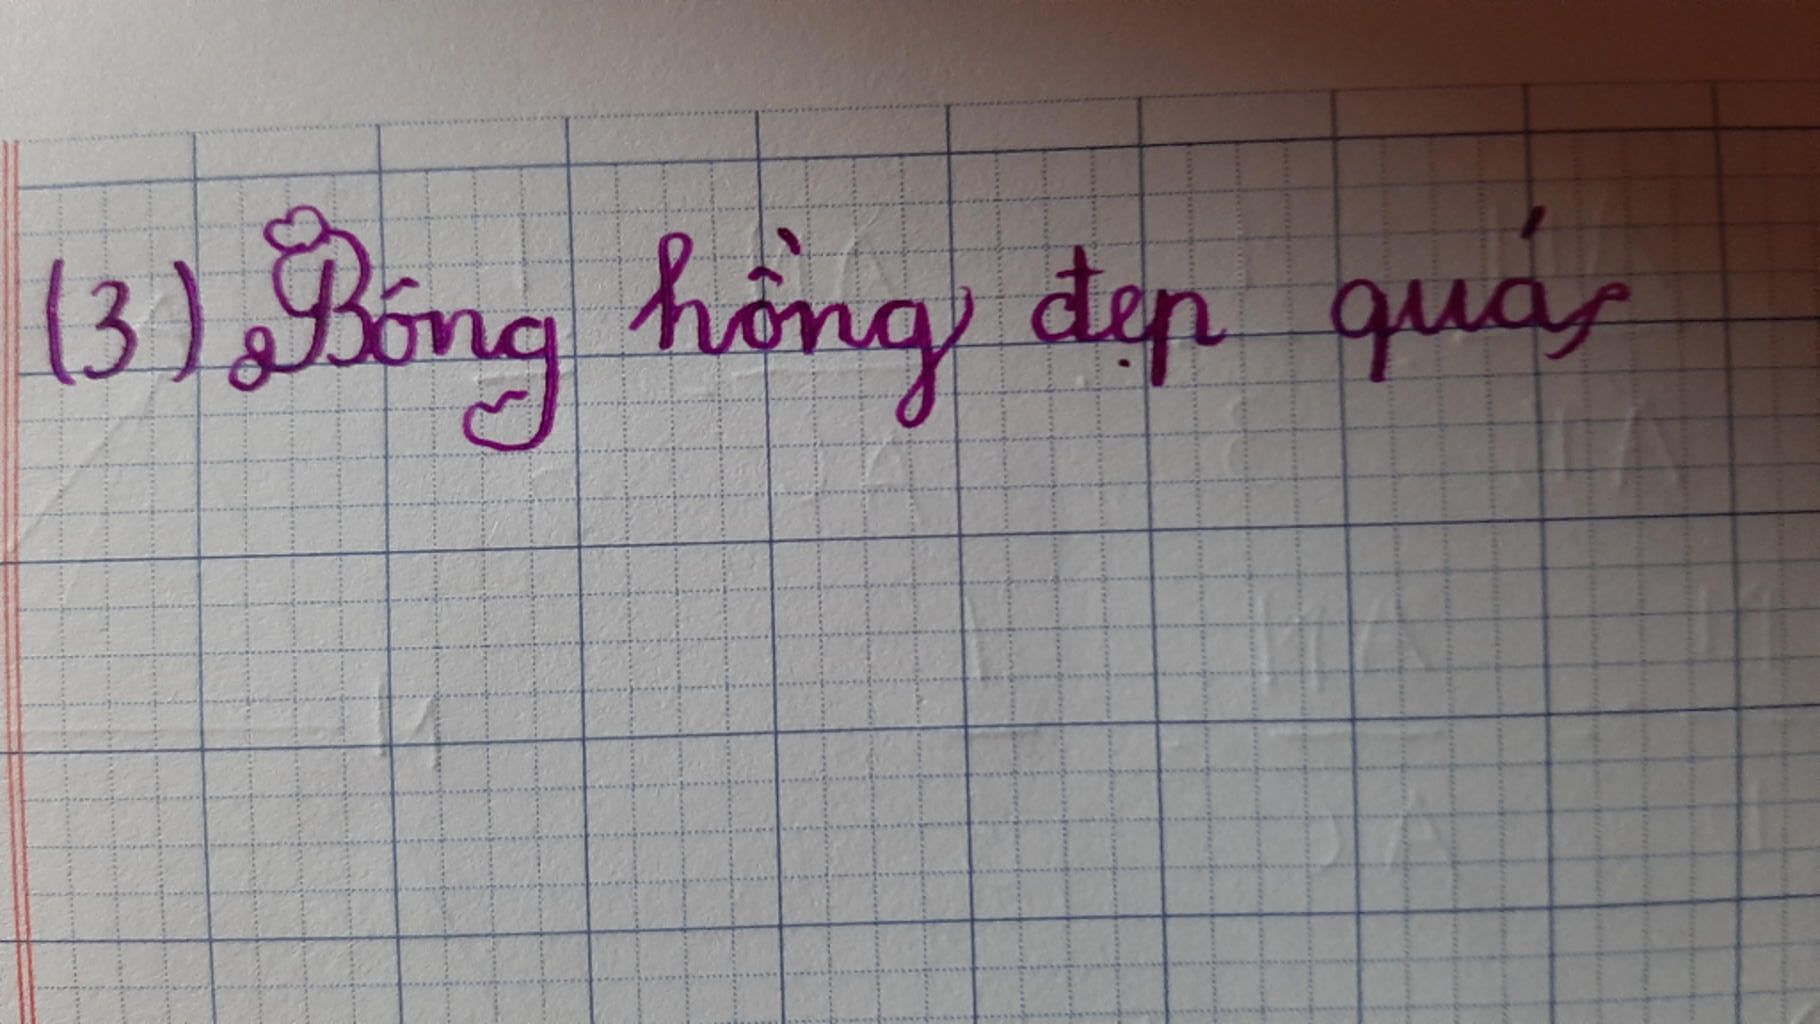 (3) Bông hồng đẹp quá